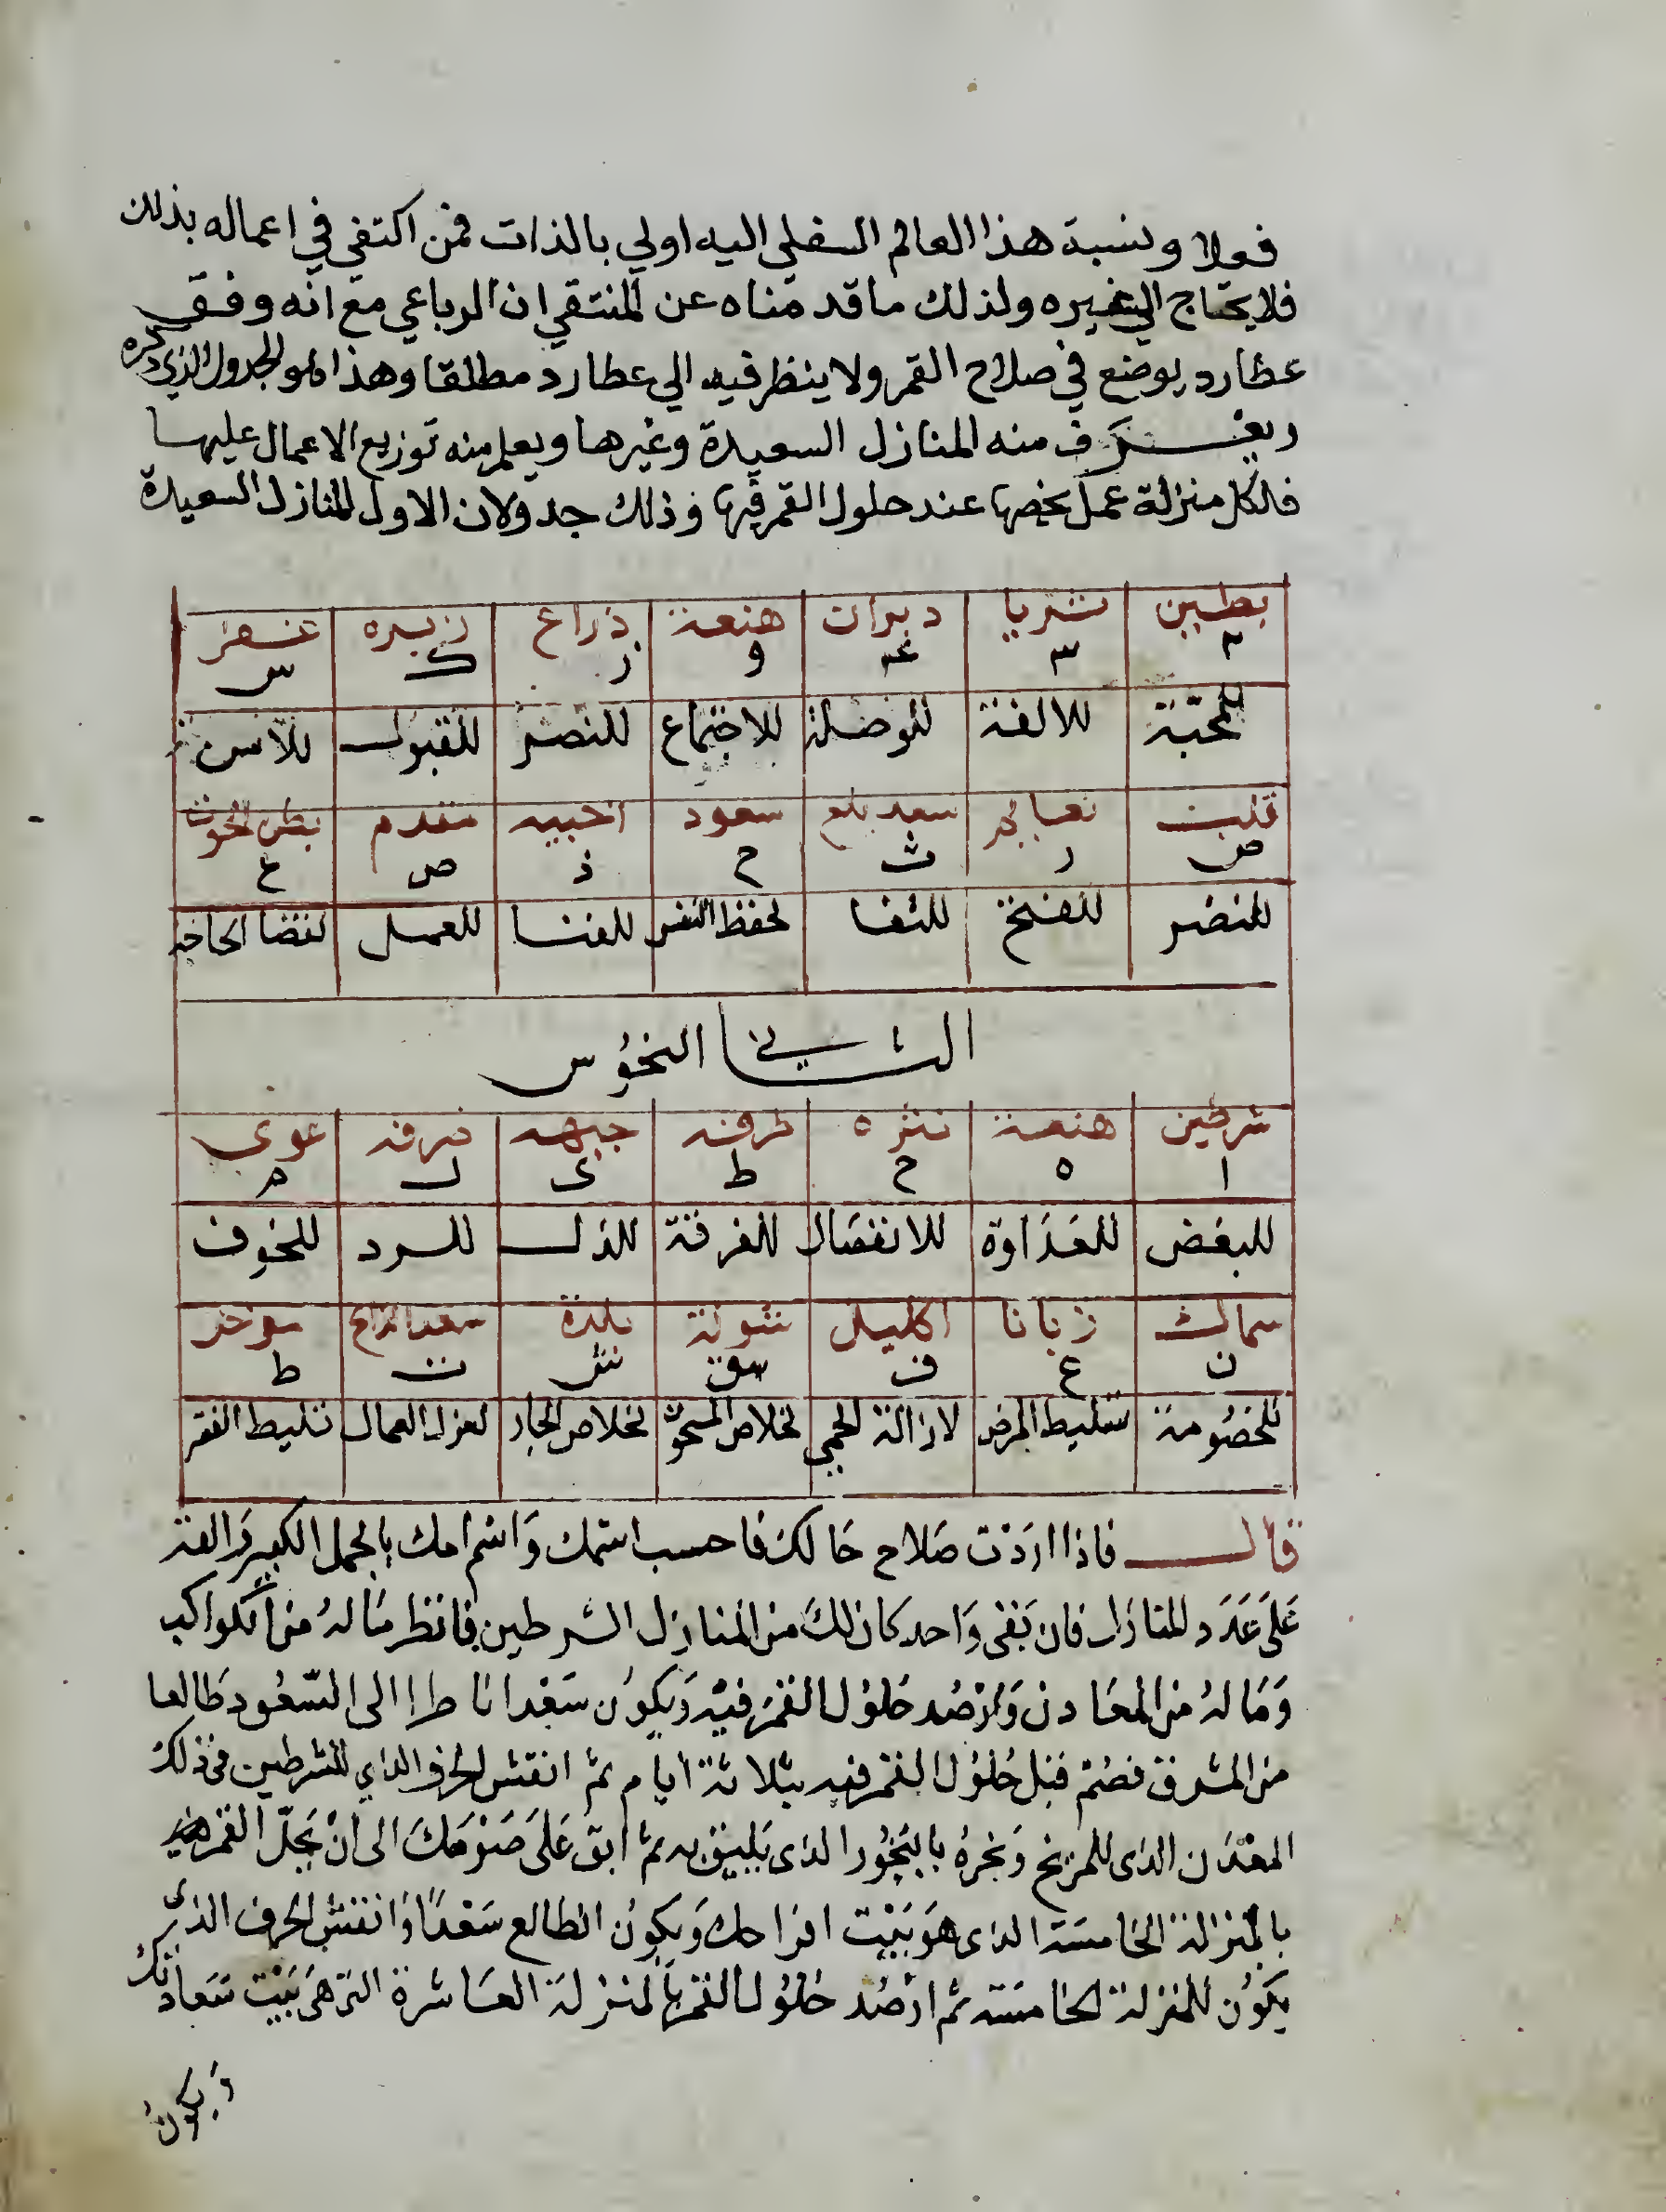 فعلا ونسبة هذا العالم السفلي اليه اولي بالذات فمن اكتفي في اعماله بذلك
فلا يحتاج الي غيره ولذلك ما قدمناه عن المنتقي ان الرباعي مع انه وفق
عطارد يوضع في صلاح القمر ولا ينظر فيه الي عطارد مطلقا وهذا هو الجدول الذي ذكره
ويعرف منه المنازل السعيدة وغيرها ويعلم منه توزيع الاعمال عليها
فلكل منزلة عمل يخصها عند حلول القمر فيها وذلك جدولان الاول للمنازل السعيدة
بطين ثريا دبران هنعة ذراع زبره غفر
٢ ٣ ع و ز ك س
للمحبة للالفة للوصلة للاجتماع للنصر للقبول للانس
قلب نعايم سعد بلع سعود اخبيه مقدم بطن الحوت
ص ر ث ح ذ ض غ
للنصر للفتح للشفا لحفظ النفس للغنا للعمل لقضا الحاجه
الثاني النحوس
شرطين هنعة نثره طرفه جبهه صرفه عوي
ا ه ح ط ي ل م
للبغض للعداوة للانفصال للفرقة للذل للرد للخوف
سماك زبانا اكليل شولة بلدة سعد الذابح موخر
ن ع ف ق ش ت ظ
للخصومة تسليط المرض لازالة الحمي لخلاص المسجون لخلاص الجار لعزل العمال تسليط الفقر
قال فاذا اردت صلاح حالك فاحسب اسمك واسم امك بالجمل الكبير والقه
على عدد المنازل فان بقى واحد كان لك من المنازل الشرطين فانظر ما له من الكواكب
وما له من المعادن وارصد حلول القمر فيه ويكون سعدا ناظرا الى السعود طالعا
من المشرق فصم قبل حلول القمر فيه بثلاثة ايام ثم انقش الحرف الذي للشرطين فى ذلك
المعدن الذى للمريخ وبخره بالبخور الذى يليق به ثم ابق على صومك الى ان يحل القمر فيه
بالمنزلة الخامسة الذى هو بيت افراحك ويكون الطالع سعدا وانقش الحرف الذي
يكون للمنزلة الخامسه ثم ارصد حلول القمر بالمنزلة العاشرة التى هى بيت سعادتك
ويكون